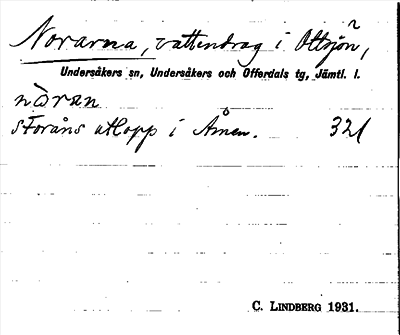 Norarna, vattendrag i Ottsjön,
Undersåkers sn, Undersåkers och Offerdals tg, Jämtl. l.
nòran
sForåns utlopp i Ånen. 321
C. LINDBERG 1931.